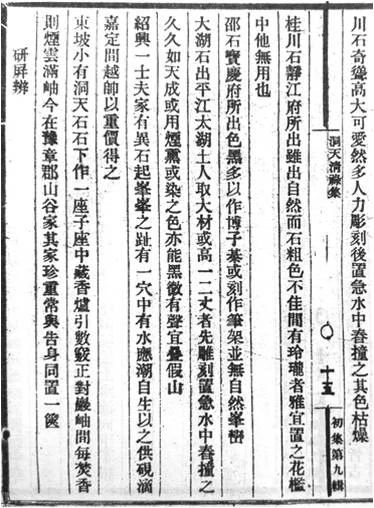 川石奇聳高大可愛然多人力彫刻後置急水中舂撞之其色枯燥
洞天清祿集
十五
初集第九輯
桂川石靜江府所出雖出自然而石粗色不佳間有玲瓏者雅宜置之花檻
中他無用也
邵石寳慶府所出色黑多以作博子棊或刻作筆架並無自然峯巒
大湖石出平江太湖土人取大材或高一二丈者先雕刻置急水中舂撞之
久久如天成或用煙熏或染之色亦能黑微有聲宜疊假山
紹興一士夫家有異石起峯峯之趾有一穴中有水應潮自生以之供硯滴
嘉定間越帥以重價得之
東坡小有洞天石石下作一座子座中藏香爐引數竅正對巖岫間每焚香
則煙雲滿岫今在豫章郡山谷家其家珍重常與告身同置一篋
研屏辨